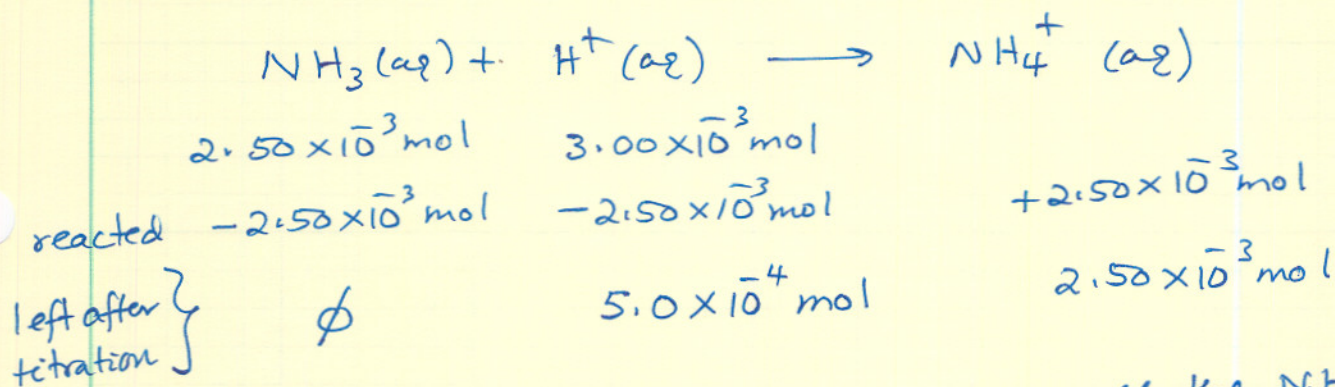 NH₃(aq) + H⁺(aq) ⟶ NH₄⁺ (aq)
2.50 × 10⁻³ mol 3.00 × 10⁻³ mol
reacted -2.50 × 10⁻³ mol -2.50 × 10⁻³ mol +2.50 × 10⁻³ mol
left after } ϕ 5.0 × 10⁻⁴ mol 2.50 × 10⁻³ mol
titration